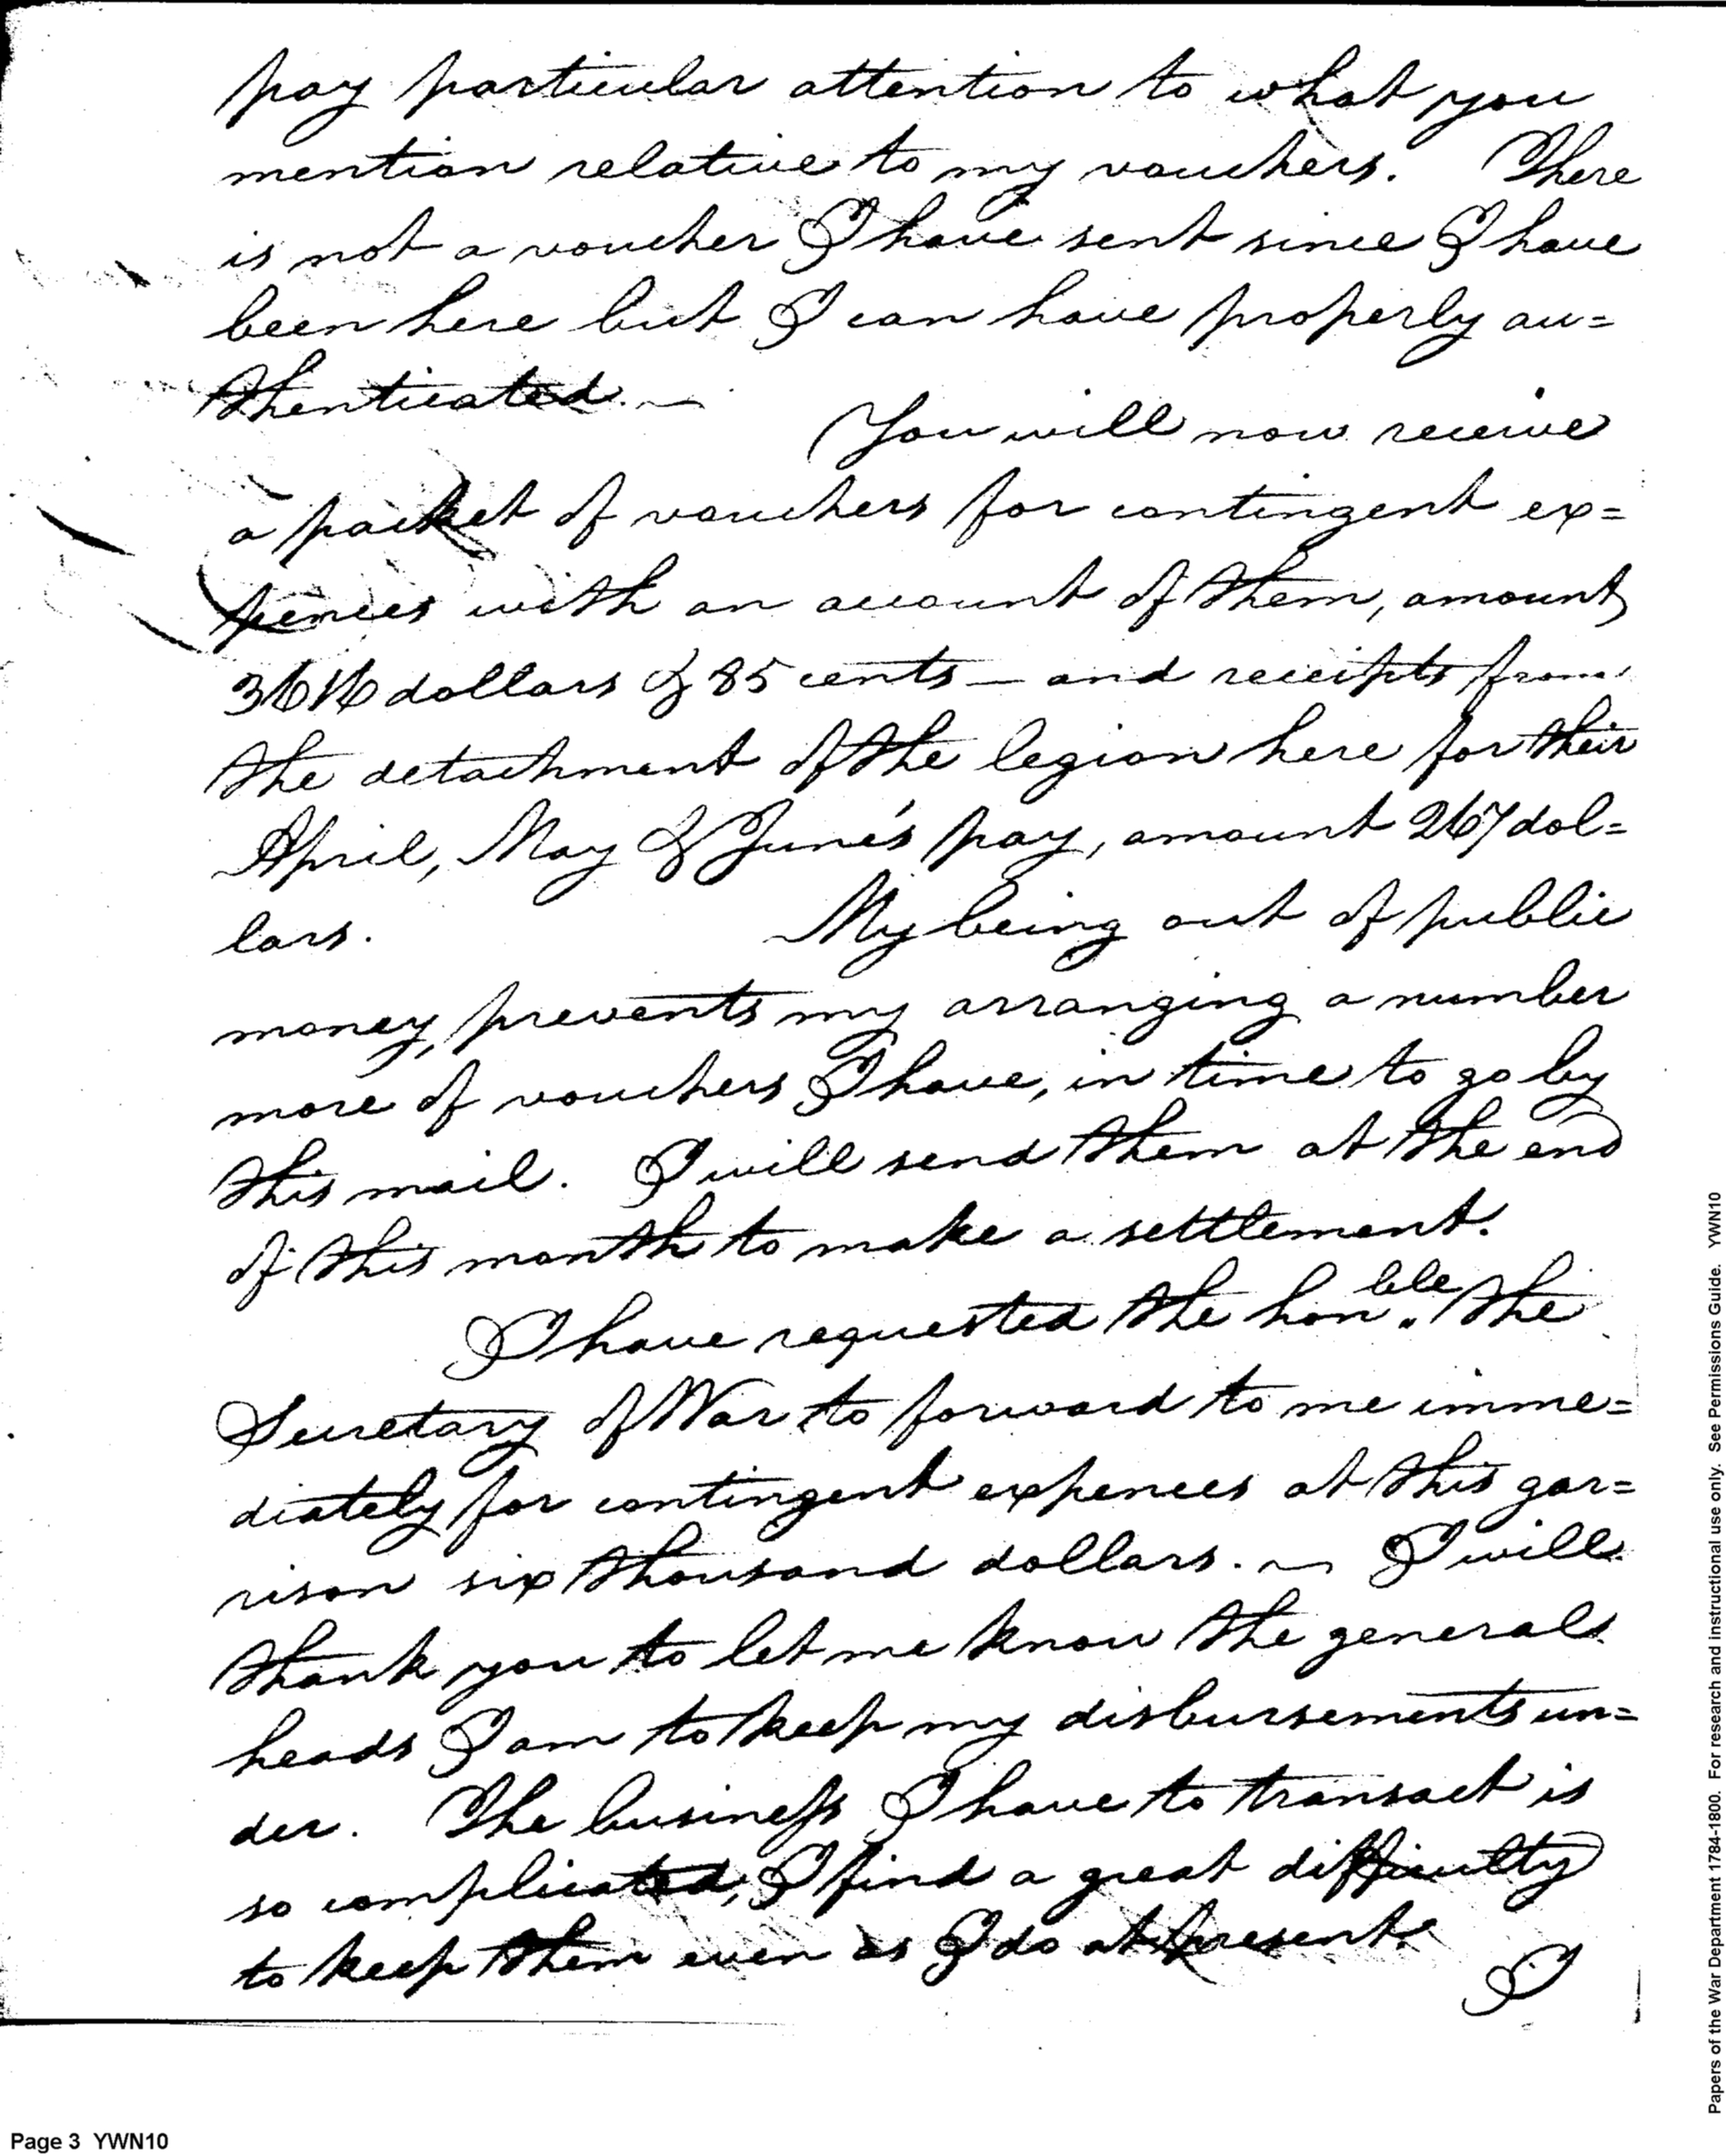 pay particular attention to what you
mention relative to my vouchers. There
is not a voucher I have sent since I have
been here but I can have properly au=
thenticated.—
You will now receive
a packet of vouchers for contingent ex=
pences with an account of them, amount
3616 dollars & 85 cents — and receipts from
the detachment of the legion here for their
April, May & June's pay, amount 267 dol=
lars. My being out of public
money, prevents my arranging a number
more of vouchers I have, in time to go by
this mail. I will send them at the end
of this month to make a settlement.
I have requested the honble. the
Secretary of War to forward to me imme=
diately for contingent expences at this gar=
rison six thousand dollars. — I will
thank you to let me know the general
heads I am to keep my disbursements un=
der. The business I have to transact is
so complicated, I find a great difficulty
to keep them even as I do at present.
I
Page 3 YWN10
Papers of the War Department 1784-1800. For research and instructional use only. See Permissions Guide. YWN10